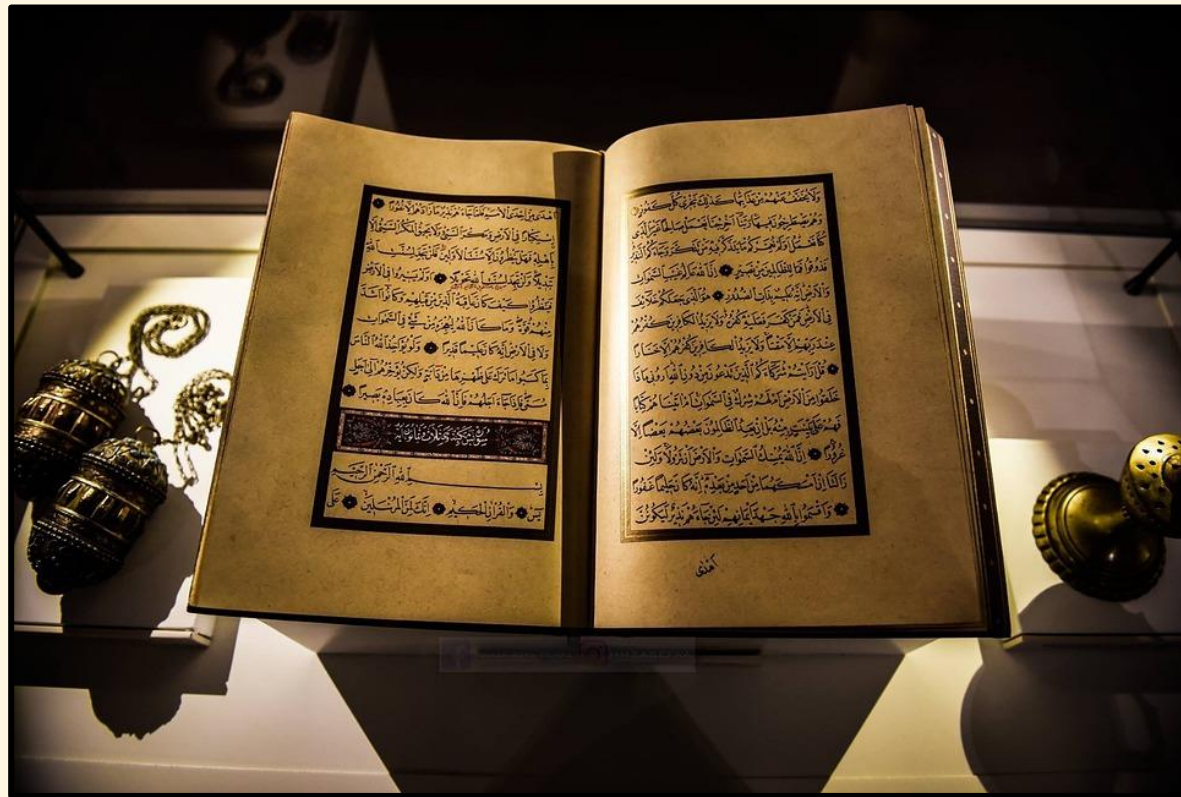 وَلَا يُخَفَّفُ عَنْهُمْ مِنْ عَذَابِهَا كَذٰلِكَ نَجْزِي كُلَّ كَفُورٍ
وَهُمْ يَصْطَرِخُونَ فِيهَا رَبَّنَا أَخْرِجْنَا نَعْمَلْ صَالِحًا غَيْرَ الَّذِي
كُنَّا نَعْمَلُ أَوَلَمْ نُعَمِّرْكُمْ مَا يَتَذَكَّرُ فِيهِ مَنْ تَذَكَّرَ وَجَاءَكُمُ النَّذِيرُ
فَذُوقُوا فَمَا لِلظَّالِمِينَ مِنْ نَصِيرٍ إِنَّ اللّٰهَ عَالِمُ غَيْبِ السَّمٰوَاتِ
وَالْأَرْضِ إِنَّهُ عَلِيمٌ بِذَاتِ الصُّدُورِ هُوَ الَّذِي جَعَلَكُمْ خَلَائِفَ
فِي الْأَرْضِ فَمَنْ كَفَرَ فَعَلَيْهِ كُفْرُهُ وَلَا يَزِيدُ الْكَافِرِينَ كُفْرُهُمْ
عِنْدَ رَبِّهِمْ إِلَّا مَقْتًا وَلَا يَزِيدُ الْكَافِرِينَ كُفْرُهُمْ إِلَّا خَسَارًا
قُلْ أَرَأَيْتُمْ شُرَكَاءَكُمُ الَّذِينَ تَدْعُونَ مِنْ دُونِ اللّٰهِ أَرُونِي مَاذَا
خَلَقُوا مِنَ الْأَرْضِ أَمْ لَهُمْ شِرْكٌ فِي السَّمٰوَاتِ أَمْ اٰتَيْنَاهُمْ كِتَابًا
فَهُمْ عَلَى بَيِّنَتٍ مِنْهُ بَلْ إِنْ يَعِدُ الظَّالِمُونَ بَعْضُهُمْ بَعْضًا إِلَّا
غُرُورًا إِنَّ اللّٰهَ يُمْسِكُ السَّمٰوَاتِ وَالْأَرْضَ أَنْ تَزُولَا وَلَئِنْ
زَالَتَا إِنْ أَمْسَكَهُمَا مِنْ أَحَدٍ مِنْ بَعْدِهِ إِنَّهُ كَانَ حَلِيمًا غَفُورًا
وَأَقْسَمُوا بِاللّٰهِ جَهْدَ أَيْمَانِهِمْ لَئِنْ جَاءَهُمْ نَذِيرٌ لَيَكُونُنَّ
أَهْدَى
أَهْدَى مِنْ إِحْدَى الْأُمَمِ فَلَمَّا جَاءَهُمْ نَذِيرٌ مَا زَادَهُمْ إِلَّا نُفُورًا
اِسْتِكْبَارًا فِي الْأَرْضِ وَمَكْرَ السَّيِّئِ وَلَا يَحِيقُ الْمَكْرُ السَّيِّئُ إِلَّا
بِأَهْلِهِ فَهَلْ يَنْظُرُونَ إِلَّا سُنَّتَ الْأَوَّلِينَ فَلَنْ تَجِدَ لِسُنَّتِ اللّٰهِ
تَبْدِيلًا وَلَنْ تَجِدَ لِسُنَّتِ اللّٰهِ تَحْوِيلًا أَوَلَمْ يَسِيرُوا فِي الْأَرْضِ
فَيَنْظُرُوا كَيْفَ كَانَ عَاقِبَةُ الَّذِينَ مِنْ قَبْلِهِمْ وَكَانُوا أَشَدَّ
مِنْهُمْ قُوَّةً وَمَا كَانَ اللّٰهُ لِيُعْجِزَهُ مِنْ شَيْءٍ فِي السَّمٰوَاتِ
وَلَا فِي الْأَرْضِ إِنَّهُ كَانَ عَلِيمًا قَدِيرًا وَلَوْ يُؤَاخِذُ اللّٰهُ النَّاسَ
بِمَا كَسَبُوا مَا تَرَكَ عَلَى ظَهْرِهَا مِنْ دَابَّةٍ وَلٰكِنْ يُؤَخِّرُهُمْ إِلَى أَجَلٍ
مُسَمًّى فَإِذَا جَاءَ أَجَلُهُمْ فَإِنَّ اللّٰهَ كَانَ بِعِبَادِهِ بَصِيرًا
سورة يس مكية وهي ثلاث وثمانون اية
بِسْمِ اللّٰهِ الرَّحْمٰنِ الرَّحِيمِ
يس وَالْقُرْاٰنِ الْحَكِيمِ إِنَّكَ لَمِنَ الْمُرْسَلِينَ عَلَى